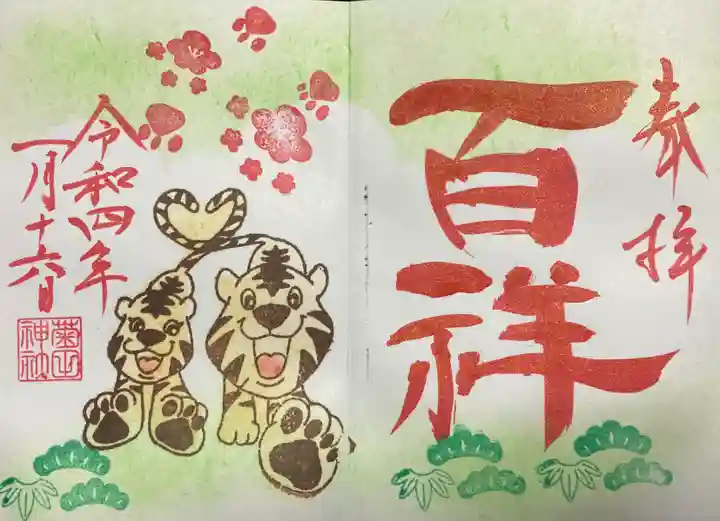 奉拝
百祥
令和四年
一月十六日
菊田
神社